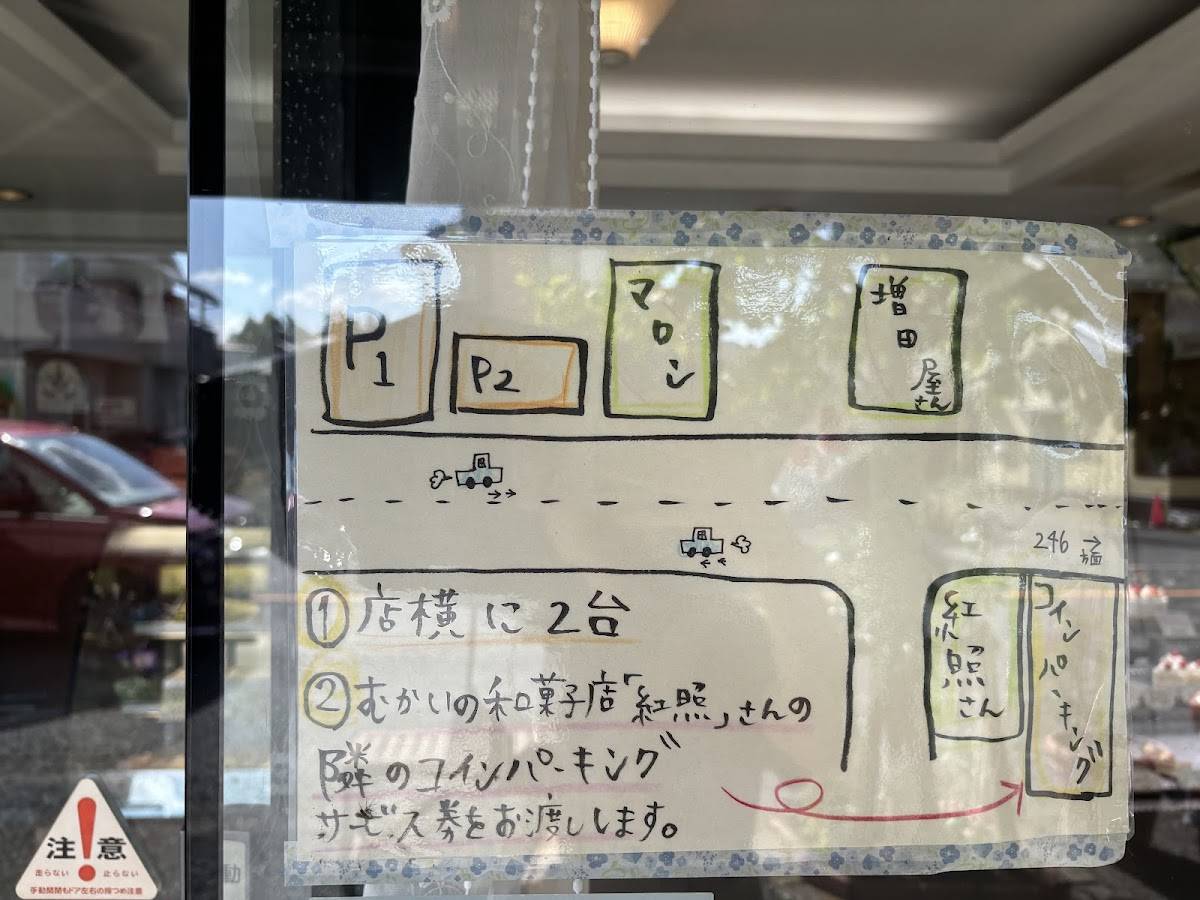 P1
P2
マロン
増田屋さん
246→
方面
紅照さん
コインパーキング
①店横に2台
②むかいの和菓子店「紅照」さんの
隣のコインパーキング
サービス券をお渡しします。
注意
走らない 止らない
手動開閉もドア左右の指つめ注意
動